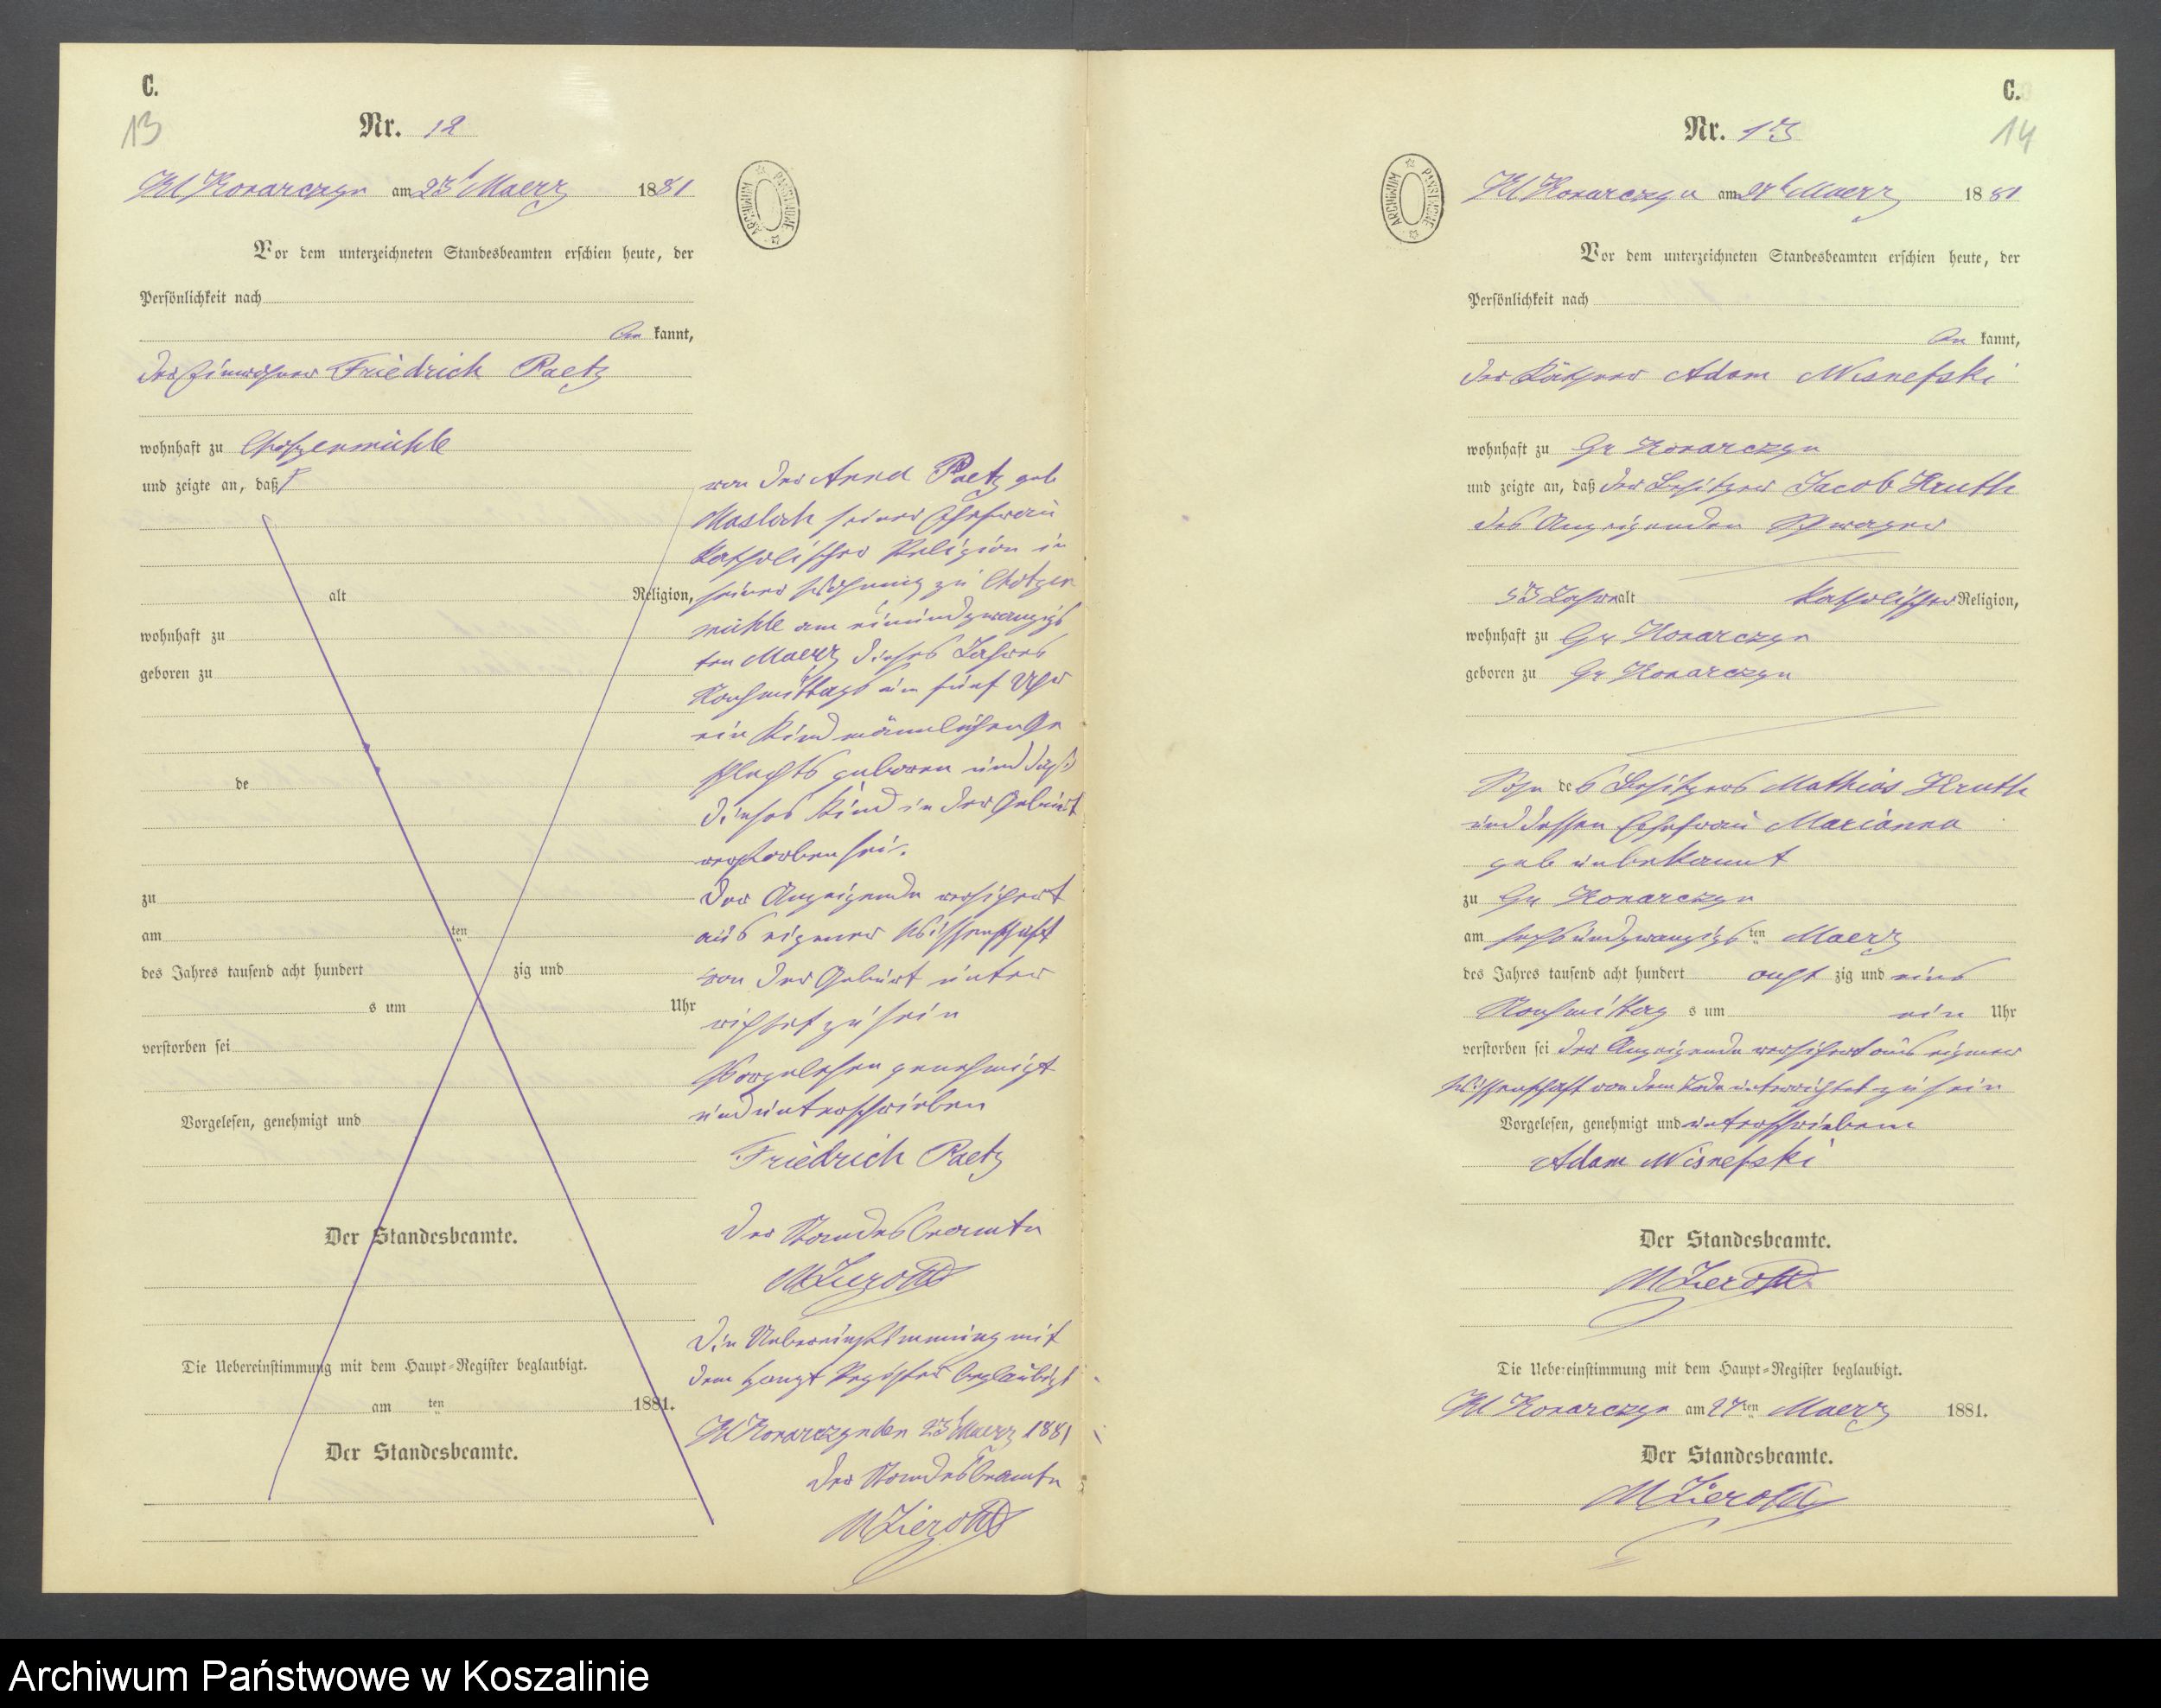 C.
13
Nr. 12
Kl Konarczyn am 23t Maerz 1881
Vor dem unterzeichneten Standesbeamten erschien heute, der
Persönlichkeit nach
be kannt,
der Einwohner Friedrich Paetz
wohnhaft zu Chotzenmühle
und zeigte an, daß
alt Religion,
wohnhaft zu
geboren zu
de
zu
am ten
des Jahres tausend acht hundert zig und
s um Uhr
verstorben sei
Vorgelesen, genehmigt und
Der Standesbeamte.
Die Uebereinstimmung mit dem Haupt-Register beglaubigt.
am ten 1881.
Der Standesbeamte.
ARCHIWUM PAŃSTWOWE
von der Anna Paetz geb
Masloch seiner Ehefrau
katholischer Religion in
seiner Wohnung zu Chotzen
mühle am einundzwanzigs
ten Maerz dieses Jahres
Nachmittags um fünf Uhr
ein Kind männlichen Ge
schlechts geboren und daß
dieses Kind in der Geburt
verstorben sei.
Der Anzeigende versichert
aus eigener Wissenschaft
von der Geburt unter
richtet zu sein
Vorgelesen genehmigt
und unterschrieben
Friedrich Paetz
Der Standesbeamte
MZieroth
Die Uebereinstimmung mit
dem Haupt Register beglaubigt
Kl Konarczyn den 23t Maerz 1881
Der Standesbeamte
MZieroth
C.
14
Nr. 13
ARCHIWUM PAŃSTWOWE
Kl Konarczyn am 27t Maerz 1881
Vor dem unterzeichneten Standesbeamten erschien heute, der
Persönlichkeit nach
be kannt,
der Käthner Adam Wisnefski
wohnhaft zu Gr Konarczyn
und zeigte an, daß der Besitzer Jacob Hruth
des Anzeigenden Schwager
53 Jahre alt katholischer Religion,
wohnhaft zu Gr Konarczyn
geboren zu Gr Konarczyn
Sohn des Besitzers Mathias Hruth
und dessen Ehefrau Marianna
geb unbekannt
zu Gr Konarczyn
am sechsundzwanzigs ten Maerz
des Jahres tausend acht hundert acht zig und eins
Nachmittag s um ein Uhr
verstorben sei der Anzeigende versichert aus eigener
Wissenschaft von dem Tode unterrichtet zu sein
Vorgelesen, genehmigt und unterschrieben
Adam Wisnefski
Der Standesbeamte.
MZieroth
Die Uebereinstimmung mit dem Haupt-Register beglaubigt.
Kl Konarczyn am 27ten Maerz 1881.
Der Standesbeamte.
MZieroth
Archiwum Państwowe w Koszalinie